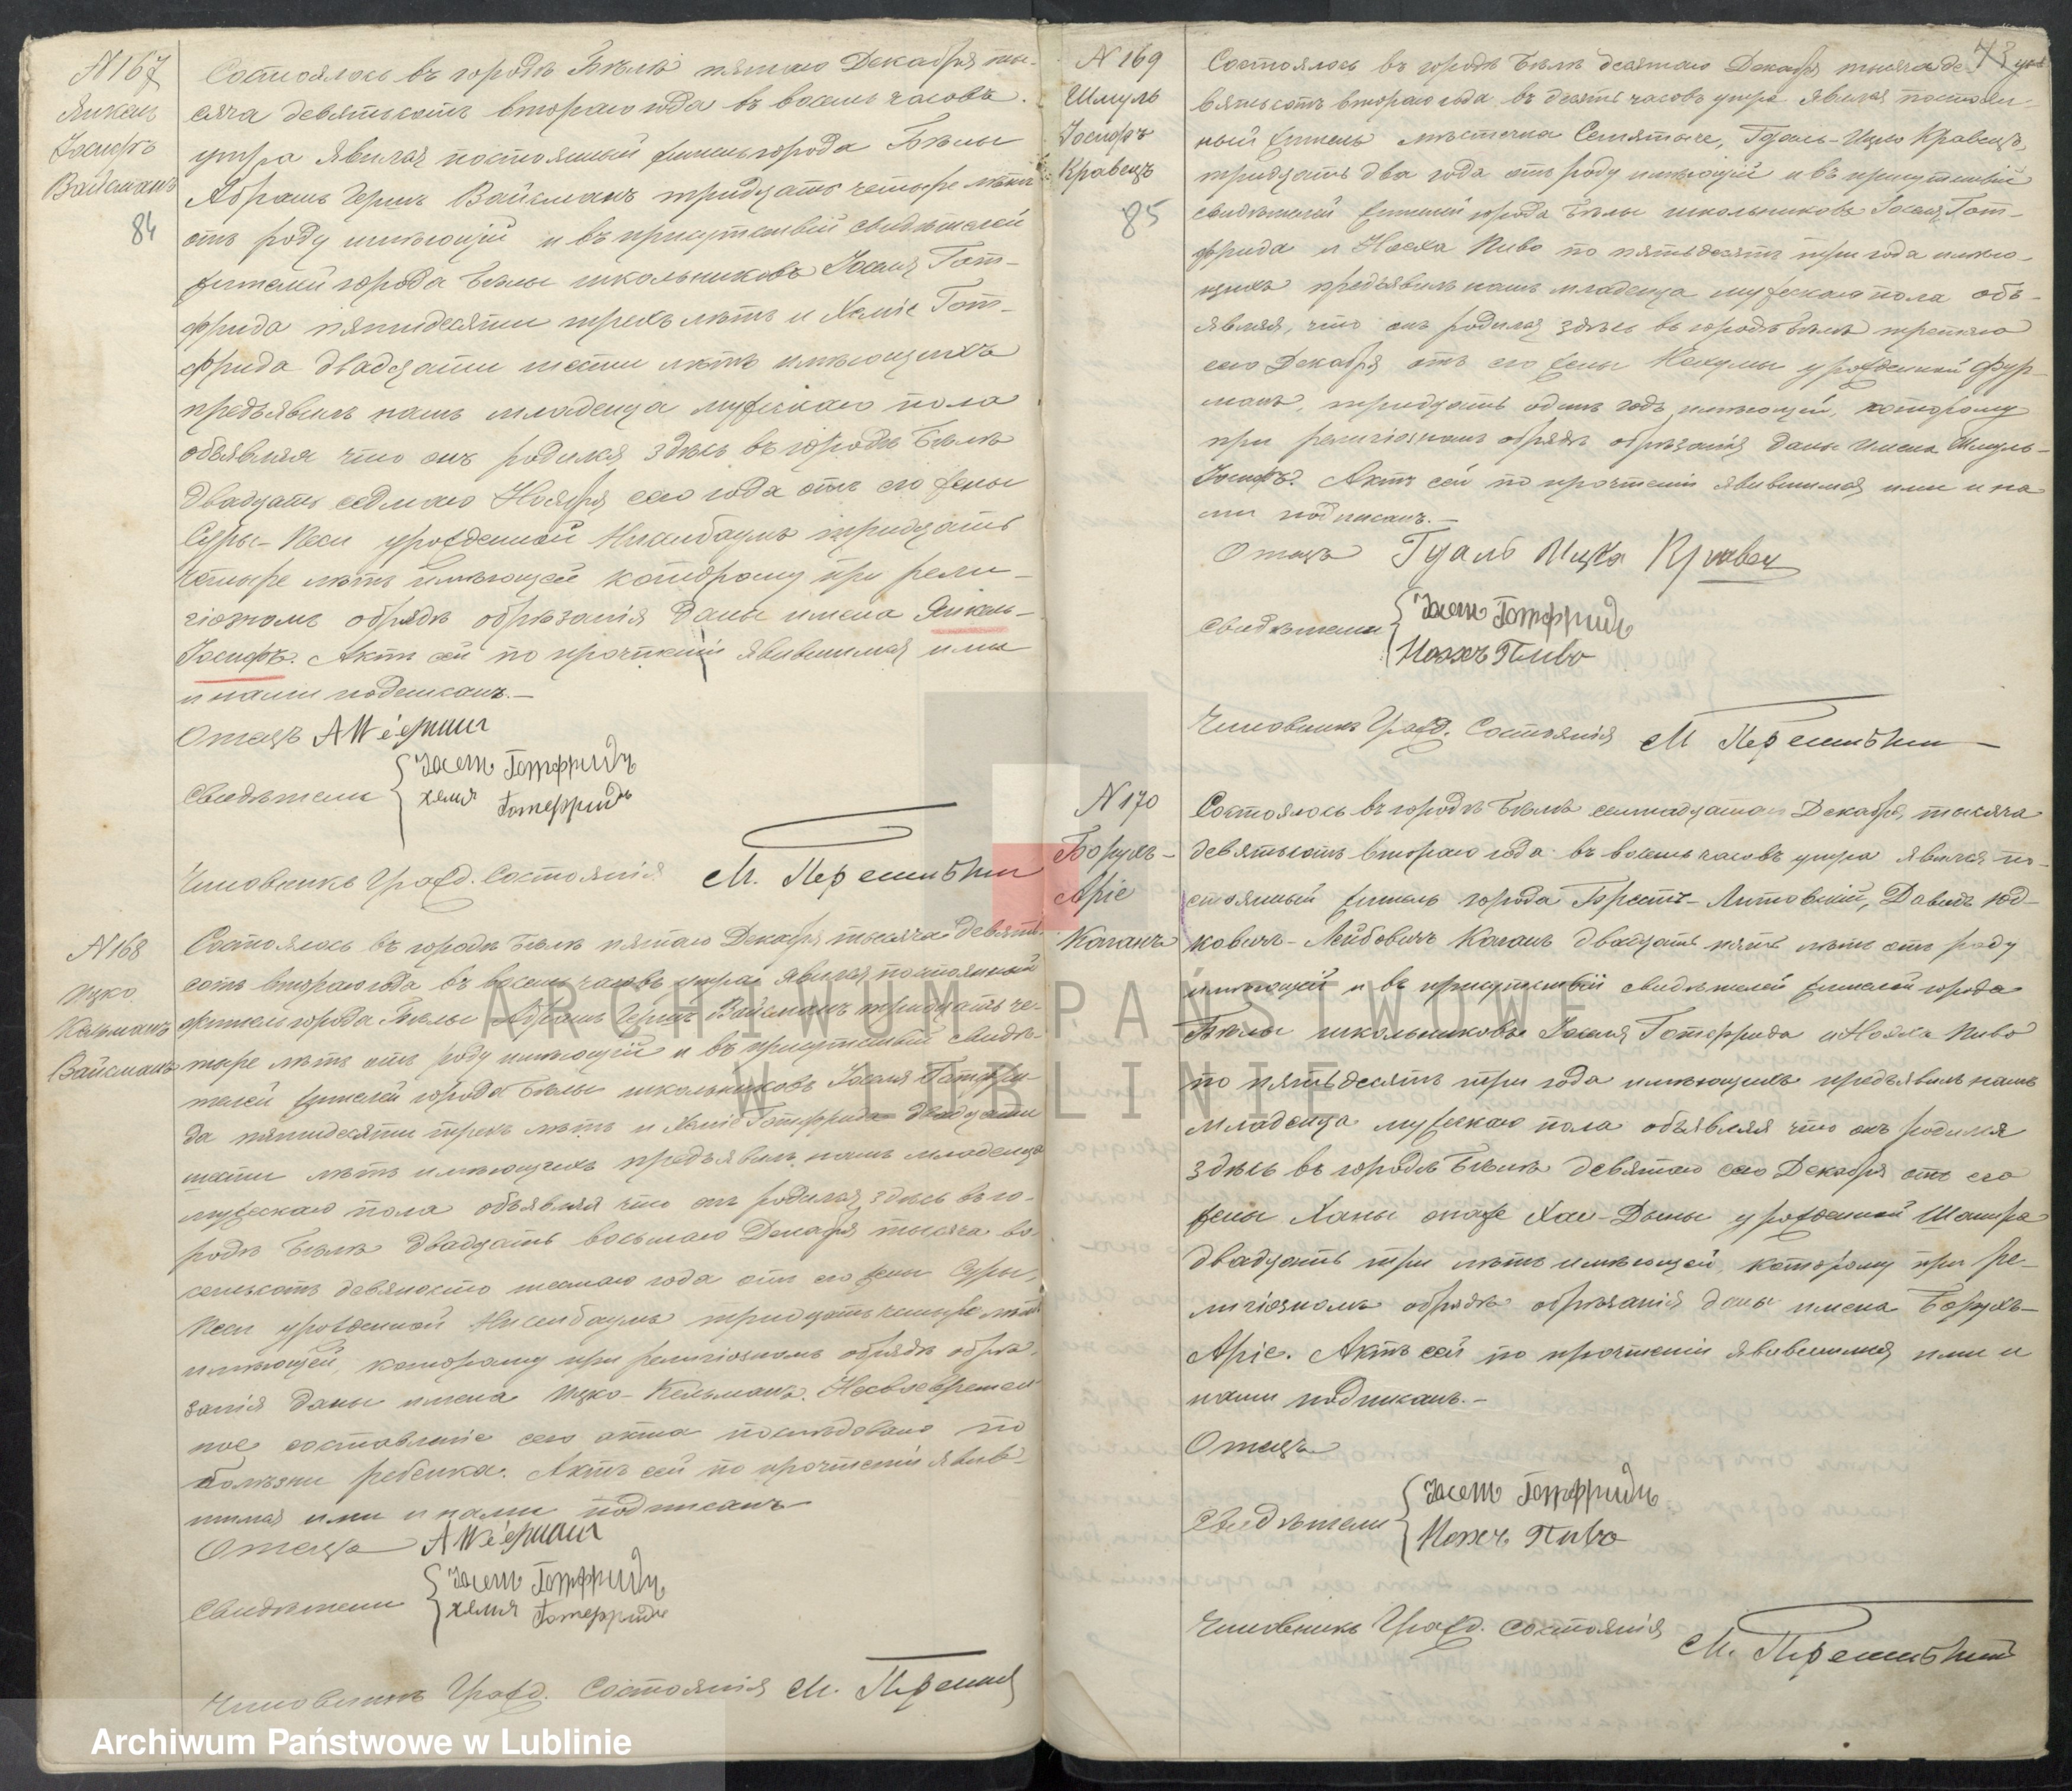 N 167
Янкель
Іосифъ
Вайсманъ
84
Состоялось въ городѣ Бѣлѣ пятаго Декабря ты-
сяча девятьсотъ второго года въ восемь часовъ
утра явился постоянный житель города Бѣлы
Абрамъ Гершъ Вайсманъ тридцать четыре лѣтъ
отъ роду имѣющій и въ присутствіи свидѣтелей
жителей города Бѣлы школьниковъ Іоселя Гот-
фрида пятидесяти трехъ лѣтъ и Хеміе Гот-
фрида двадцати шести лѣтъ имѣющихъ
предъявилъ намъ младенца мужскаго пола
объявляя что онъ родился здѣсь въ городѣ Бѣлѣ
двадцать седьмаго Ноября сего года отъ его жены
Суры-Песи урожденной Нисенбаумъ тридцать
четыре лѣтъ имѣющей которому при рели-
гіозномъ обрядѣ обрѣзанія даны имена Янкель-
Іосифъ. Актъ сей по прочтеніи явившимся ими
и нами подписанъ.—
Отецъ
Свидѣтели { Іосель Готфридъ
Хемія Готфридъ
Чиновникъ Гражд. Состоянія М.
N 168
Ицко
Кальманъ
Вайсманъ
Состоялось въ городѣ Бѣлѣ пятаго Декабря тысяча девять-
сотъ второго года въ восемь часовъ утра явился постоянный
житель города Бѣлы Абрамъ Гершъ Вайсманъ тридцать че-
тыре лѣтъ отъ роду имѣющій и въ присутствіи свидѣ-
телей жителей города Бѣлы школьниковъ Іоселя Готфри-
да пятидесяти трехъ лѣтъ и Хеміе Готфрида двадцати
шести лѣтъ имѣющихъ предъявилъ намъ младенца
мужескаго пола объявляя что онъ родился здѣсь въ го-
родѣ Бѣлѣ двадцать восьмаго Декабря тысяча во-
семьсотъ девяносто шестаго года отъ его жены Суры-
Песи урожденной Нисенбаумъ тридцать четыре лѣтъ
имѣющей, которому при религіозномъ обрядѣ обрѣ-
занія даны имена Ицко-Кельманъ. Несвоевремен-
ное составленіе сего акта послѣдовало по
болѣзни ребенка. Актъ сей по прочтеніи явив-
шимся ими и нами подписанъ
Отецъ
Свидѣтели { Іосель Готфридъ
Хемія Готфридъ
Чиновникъ Гражд. Состоянія М.
N 169
Шмуль
Іосифъ
Кравецъ
85
43
Состоялось въ городѣ Бѣлѣ десятаго Декабря тысяча де-
вятьсотъ второго года въ десять часовъ утра явился постоян-
ный житель мѣстечка Семятыче, Гдаль-Ицко Кравецъ,
тридцать два года отъ роду имѣющій и въ присутствіи
свидѣтелей жителей города Бѣлы школьниковъ Іоселя Гот-
фрида и Носха Пиво по пятьдесятъ три года имѣю-
щихъ предъявилъ намъ младенца мужскаго пола объ-
являя, что онъ родился здѣсь въ городѣ Бѣлѣ третьяго
сего Декабря отъ его жены урожденной Фур-
манъ, тридцать одинъ годъ имѣющей, которому
при религіозномъ обрядѣ обрѣзанія даны имена Шмуль-
Іосифъ. Актъ сей по прочтеніи явившимся ими и на-
ми подписанъ.—
Отецъ Гдаль Ицка Кравец
Свидѣтели { Іосель Готфридъ
Носхъ Пиво
Чиновникъ Гражд. Состоянія М
N 170
Борухъ-
Аріе
Каганъ
Состоялось въ городѣ Бѣлѣ семнадцатаго Декабря, тысяча
девятьсотъ второго года въ восемь часовъ утра явился по-
стоянный житель города Брестъ-Литовскій, Давидъ Юд-
ковичъ-Лейбовичъ Каганъ двадцать пять лѣтъ отъ роду
имѣющій и въ присутствіи свидѣтелей жителей города
Бѣлы школьниковъ Іоселя Готфрида и Носха Пиво
по пятьдесятъ три года имѣющихъ предъявилъ намъ
младенца мужскаго пола объявляя что онъ родился
здѣсь въ городѣ Бѣлѣ девятаго сего Декабря отъ его
жены Ханы онаже Хая-Дыны урожденной Шапира
двадцать три лѣтъ имѣющей, которому при ре-
лигіозномъ обрядѣ обрѣзанія даны имена Борухъ-
Аріе. Актъ сей по прочтеніи явившимся ими и
нами подписанъ.—
Отецъ
Свидѣтели { Іосель Готфридъ
Носхъ Пиво
Чиновникъ Гражд. Состоянія М.
ARCHIWUM PAŃSTWOWE
W LUBLINIE
Archiwum Państwowe w Lublinie